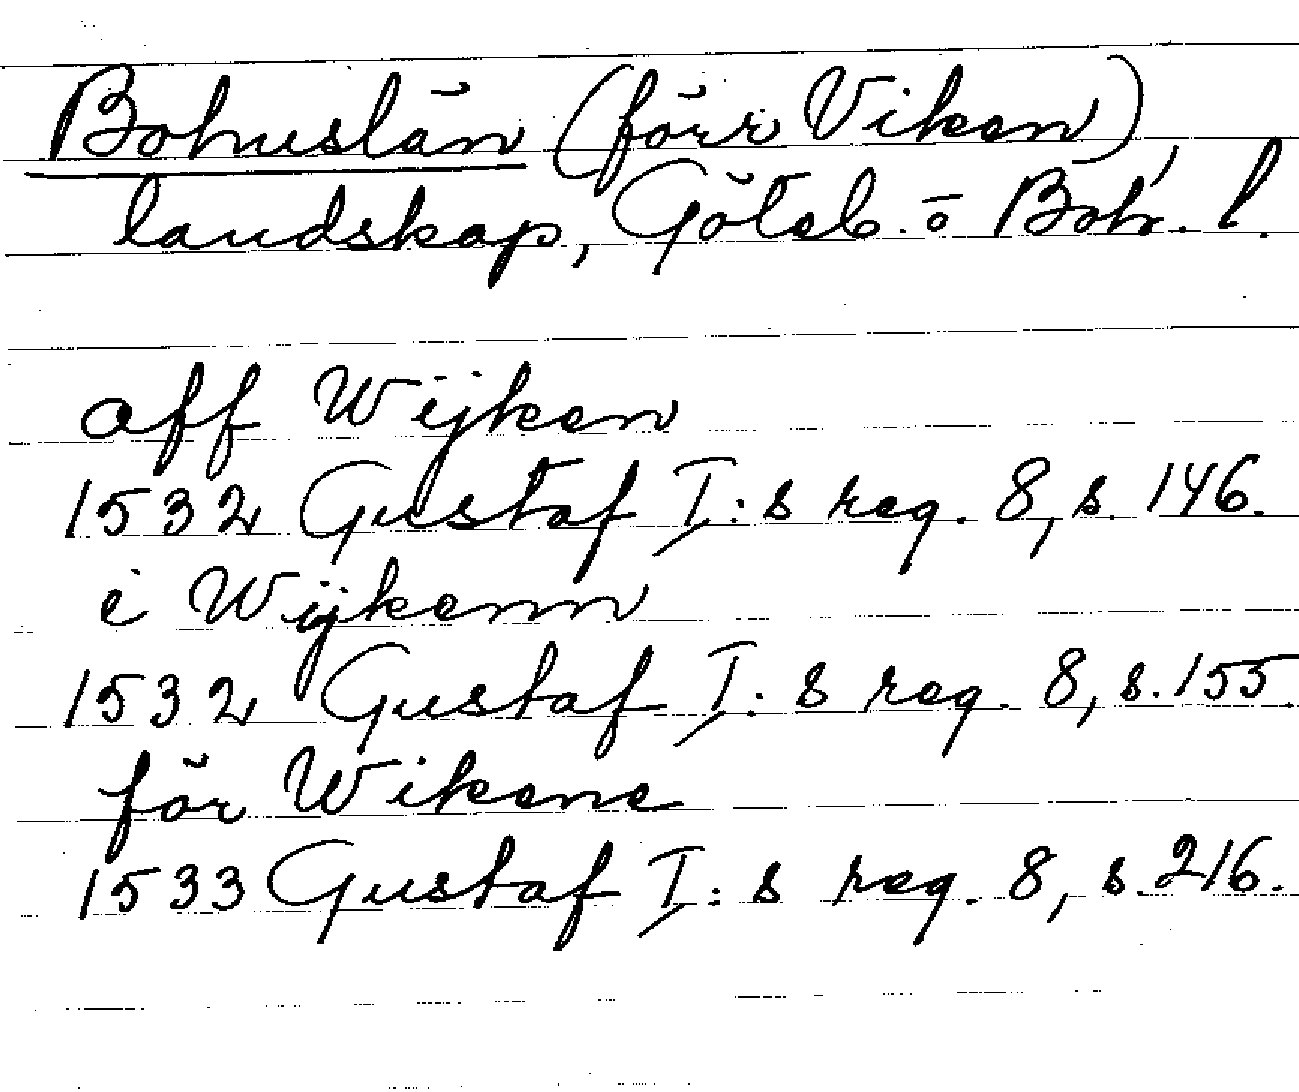 Bohuslän (förr Viken)
landskap, Göteb. o Boh. l.
aff Wijken
1532 Gustaf I:s reg. 8, s. 146.
i Wijkenn
1532 Gustaf I:s reg. 8, s. 155.
för Wikene
1533 Gustaf I:s reg. 8, s. 216.